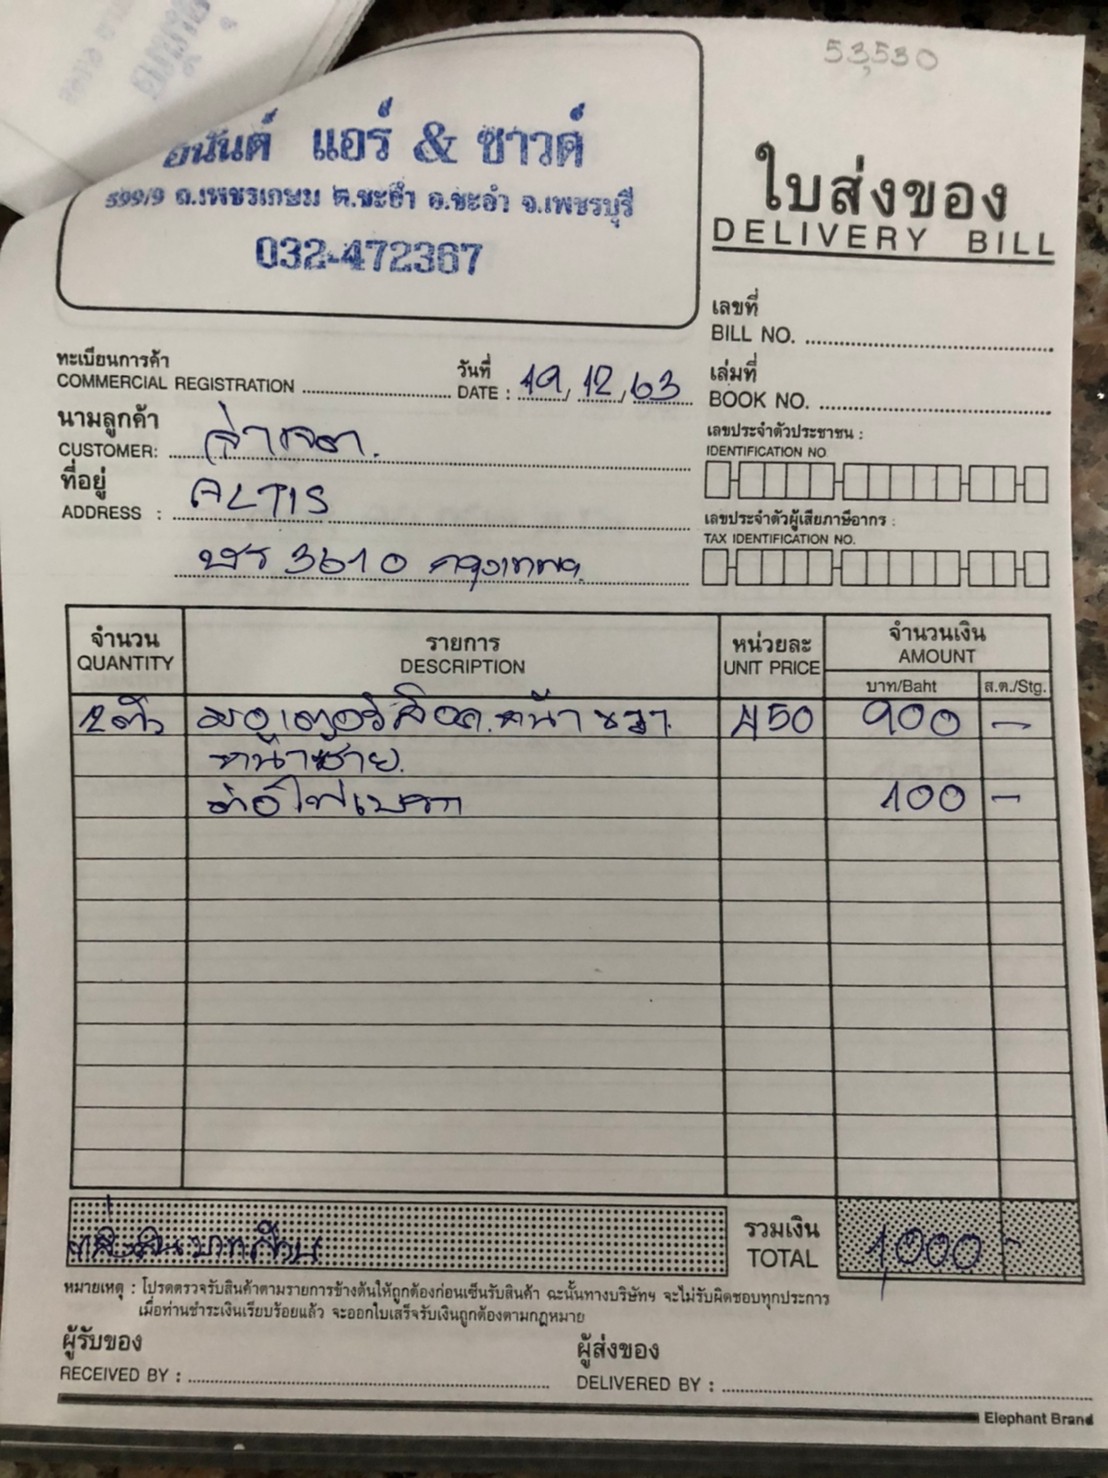 53,530
อนันต์ แอร์ & ซาวด์
599/9 ถ.เพชรเกษม ต.ชะอำ อ.ชะอำ จ.เพชรบุรี
032-472367
ใบส่งของ
DELIVERY BILL
เลขที่
BILL NO.
ทะเบียนการค้า
COMMERCIAL REGISTRATION
วันที่
DATE : 19, 12, 63
เล่มที่
BOOK NO.
นามลูกค้า
CUSTOMER:
เลขประจำตัวประชาชน :
IDENTIFICATION NO.
ที่อยู่
ADDRESS : ALTIS
3610 กรุงเทพฯ
เลขประจำตัวผู้เสียภาษีอากร :
TAX IDENTIFICATION NO.
จำนวน
QUANTITY
รายการ
DESCRIPTION
หน่วยละ
UNIT PRICE
จำนวนเงิน
AMOUNT
บาท/Baht ส.ต./Stg.
2 ตัว มอเตอร์ล็อค หน้าขวา 450 900 -
หน้าซ้าย
ต่อไฟเบรก 100 -
หนึ่งพันบาทถ้วน
รวมเงิน
TOTAL
1,000 -
หมายเหตุ : โปรดตรวจรับสินค้าตามรายการข้างต้นให้ถูกต้องก่อนเซ็นรับสินค้า ฉะนั้นทางบริษัทฯ จะไม่รับผิดชอบทุกประการ
เมื่อท่านชำระเงินเรียบร้อยแล้ว จะออกใบเสร็จรับเงินถูกต้องตามกฎหมาย
ผู้รับของ
RECEIVED BY :
ผู้ส่งของ
DELIVERED BY :
Elephant Brand